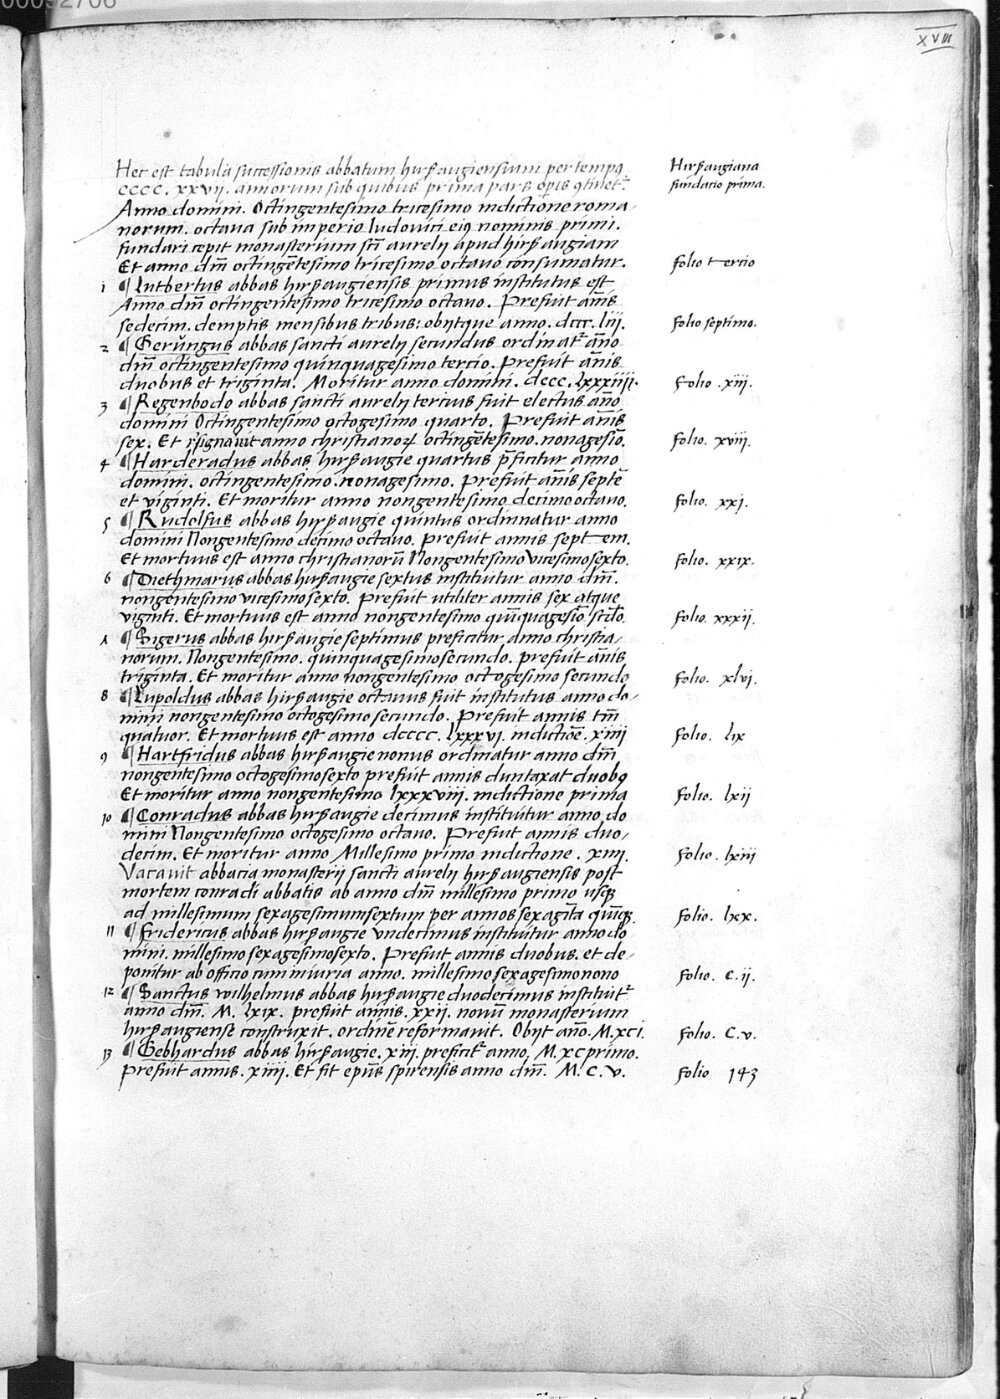 00092706
XVIII
Hec est tabula successionis abbatum hirsaugiensium per tempꝰ
CCCC. xxvij. annorum sub quibus prima pars op̄is ꝯtinet᷑.
Hirsaugiana
fundatio prima.
Anno domini. Octingentesimo tricesimo indictione roma-
norum. octaua sub imperio ludouici eiꝰ nominis primi.
fundari cepit monasterium scti aurelij apud hirsaugiam
Et anno dm̄ octingētesimo tricesimo octauo consumatur. folio tercio
1 ¶ Lutbertus abbas hirsaugiensis primus institutus est
Anno dm̄ octingentesimo tricesimo octauo. Prefuit ann̄is
sedecim. demptis mensibus tribus: obijtque anno. dccc. liij. folio septimo.
2 ¶ Gerungus abbas sancti aurelij secundus ordinat᷑ an̄o
dm̄ octingentesimo quinquagesimo tercio. Prefuit an̄is
duobus et triginta. Moritur anno domini. dccc. lxxxiiij. folio .xiij.
3 ¶ Regenbodo abbas sancti aurelij tercius fuit electus an̄o
domini Octingentesimo octogesimo quarto. Prefuit an̄is
sex. Et rᵉsignauit anno christianoꝝ octingētesimo. nonagesio. folio. xviij.
4 ¶ Harderadus abbas hirsaugie quartus p̄ficitur anno
domini. octingentesimo. nonagesimo. Prefuit an̄is septē
et viginti. Et moritur anno nongentesimo decimooctauo. folio. xxj.
5 ¶ Rudolfus abbas hirsaugie quintus ordinatur anno
domini Nongentesimo decimo octauo. Prefuit annis septem.
Et mortuus est anno christianorū Nongentesimo vicesimosexto. folio. xxix.
6 ¶ Diethmarus abbas hirsaugie sextus instituitur anno dm̄.
nongentesimo vicesimosexto. Prefuit utiliter annis sex atque
viginti. Et mortuus est anno nongentesimo quīquagesīo. scdo. folio. xxxij.
7 ¶ Sigerus abbas hirsaugie septimus preficitur anno christia-
norum. Nongentesimo. quinquagesimosecundo. prefuit an̄is
triginta. Et moritur anno nongentesimo octogesimo secundo folio. xlvj.
8 ¶ Lupoldus abbas hirsaugie octauus fuit institutus anno do-
mini nongentesimo octogesimo secundo. Prefuit annis tm̄
quatuor. Et mortuus est anno dcccc. lxxxvj. indictiōe. xiiij folio. lix
9 ¶ Hartfridus abbas hirsaugie nonus ordinatur anno dm̄
nongentesimo octogesimosexto prefuit annis duntaxat duobꝰ
Et moritur anno nongentesimo lxxxviij. indictione prima folio. lxij
10 ¶ Conradus abbas hirsaugie decimus instituitur anno do
mini Nongentesimo octogesimo octauo. Prefuit annis duo-
decim. Et moritur anno Millesimo primo indictione. xiiij. folio. lxiij
Vacauit abbacia monasterij sancti aurelij hirsaugiensis post
mortem conradi abbatis ab anno dm̄ millesimo primo usqꝫ
ad millesimum sexagesimumsextum per annos sexaginta quīqꝫ. folio. lxx.
11 ¶ Fridericus abbas hirsaugie vndecimus instituitur anno do
mini. millesimo sexagesimosexto. Prefuit annis duobus. et de-
ponitur ab officio cum iniuria anno. millesimo sexagesimonono folio. C. ij.
12 ¶ Sanctus wilhelmus abbas hirsaugie duodecimus instituit᷑
anno dm̄. M. lxix. prefuit annis. xxij. nouū monasterium
hirsaugiense construxit. ordinē reformauit. Obijt an̄o. M.xci. folio. C. v.
13 ¶ Gebhardus abbas hirsaugie. xiij. preficit᷑ anno, M. xc primo.
Prefuit annis. xiiij. Et fit epūs spirensis anno dm̄. M. C. v. folio 143